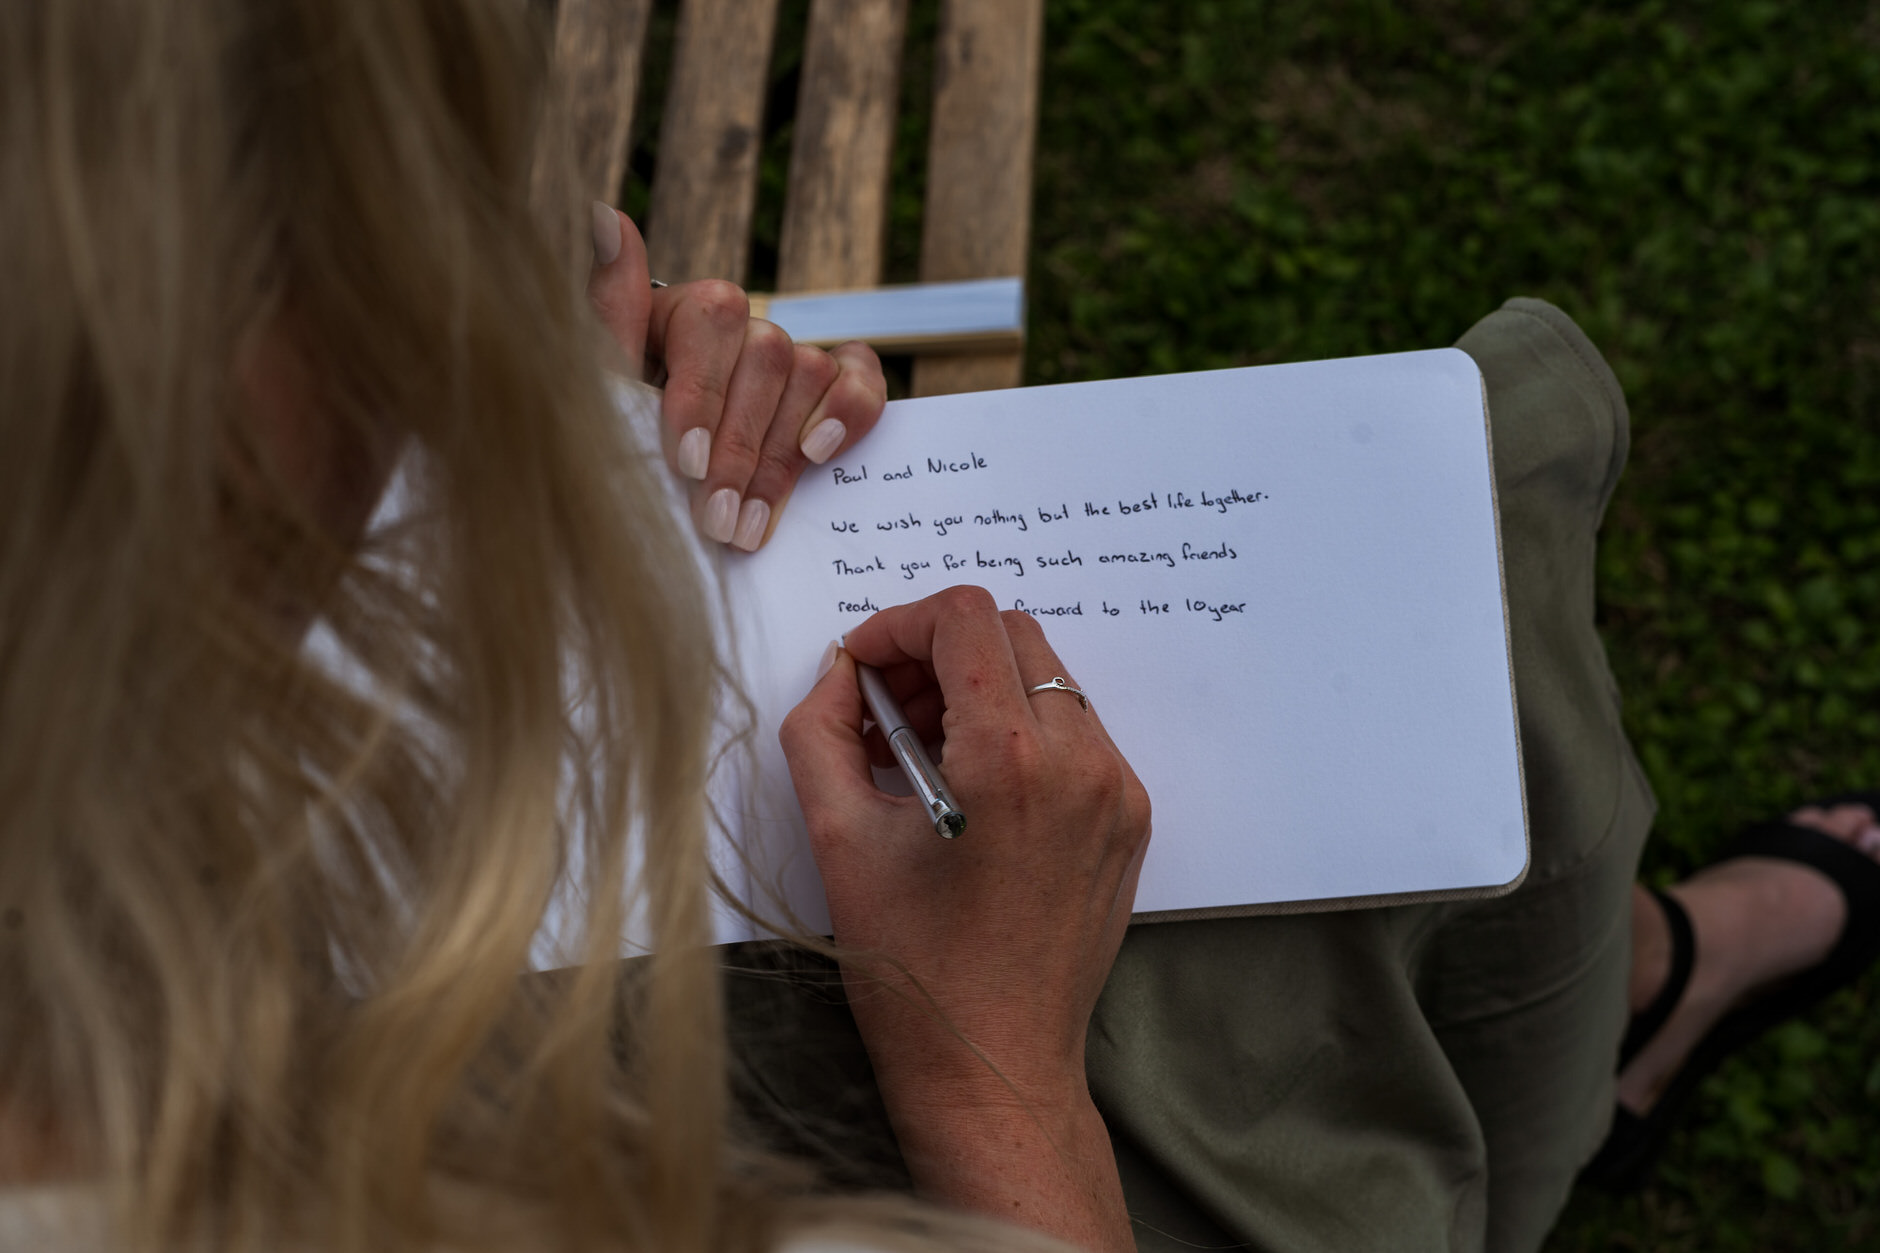 Paul and Nicole
We wish you nothing but the best life together.
Thank you for being such amazing friends
ready forward to the 10year